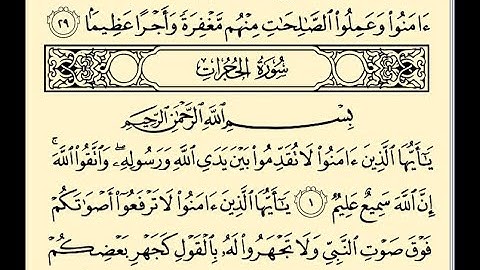 ءَامَنُواْ وَعَمِلُواْ ٱلصَّٰلِحَٰتِ مِنۡهُم مَّغۡفِرَةٗ وَأَجۡرًا عَظِيمَۢا ٢٩
سُورَةُ الحُجُرَاتِ
بِسۡمِ ٱللَّهِ ٱلرَّحۡمَٰنِ ٱلرَّحِيمِ
يَٰٓأَيُّهَا ٱلَّذِينَ ءَامَنُواْ لَا تُقَدِّمُواْ بَيۡنَ يَدَيِ ٱللَّهِ وَرَسُولِهِۦۖ وَٱتَّقُواْ ٱللَّهَۚ
إِنَّ ٱللَّهَ سَمِيعٌ عَلِيمٞ ١ يَٰٓأَيُّهَا ٱلَّذِينَ ءَامَنُواْ لَا تَرۡفَعُوٓاْ أَصۡوَٰتَكُمۡ
فَوۡقَ صَوۡتِ ٱلنَّبِيِّ وَلَا تَجۡهَرُواْ لَهُۥ بِٱلۡقَوۡلِ كَجَهۡرِ بَعۡضِكُمۡ